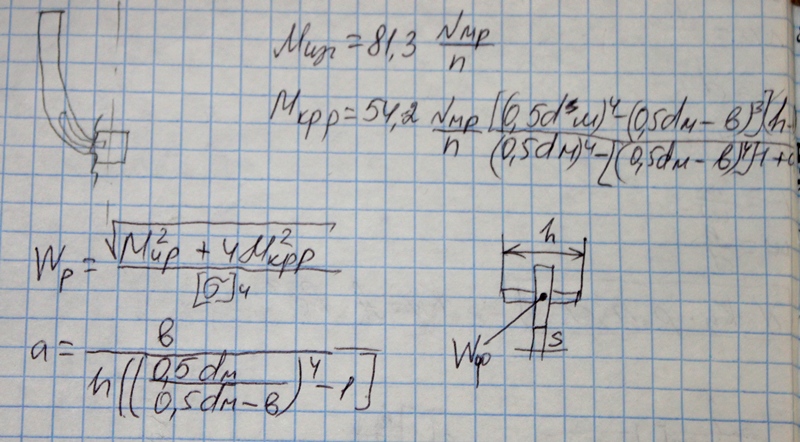 Mизг = 81,3 Nмр/n
Mкрр = 54,2 Nмр/n [(0,5d³м)⁴ - (0,5dм - в)³](h-
(0,5dм)⁴ - [(0,5dм - в)⁴] 1 +
Wр = √(M²ир + 4M²крр) / [σ]ч
a = в / h((0,5dм / 0,5dм - в)⁴ - 1]
h
Wф
s